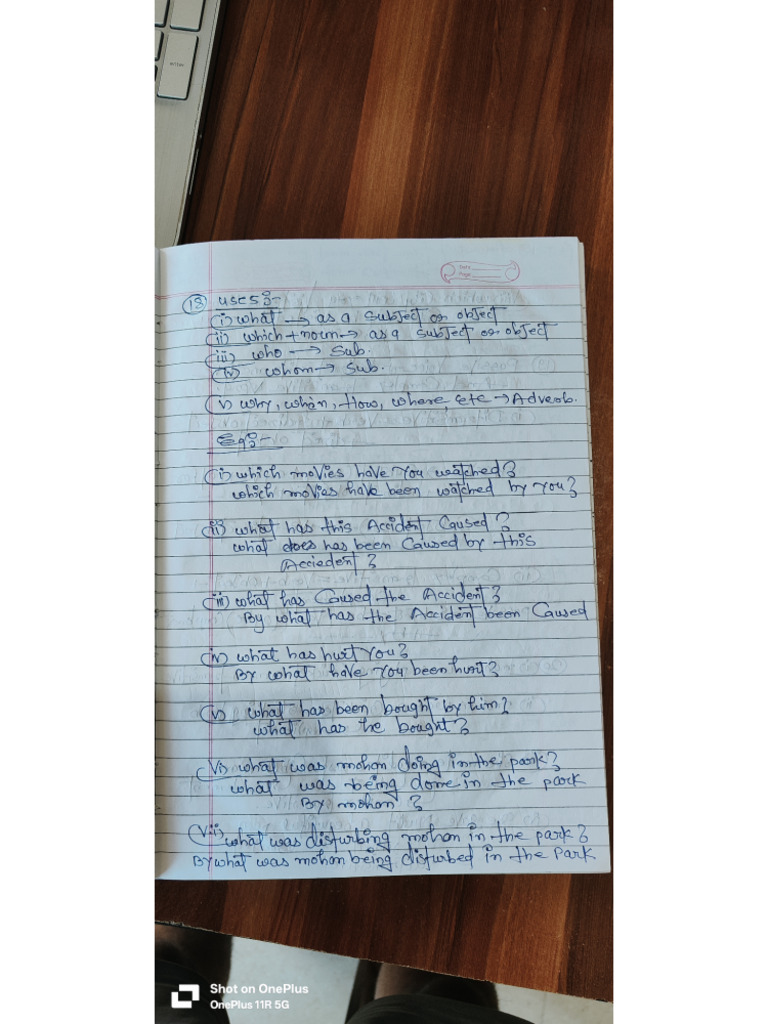 enter
Date
Page
18 uses:-
(i) what → as a subject or object
(ii) which + noun → as a subject or object
(iii) who → sub.
(iv) whom → sub.
(v) why, when, How, where, etc → Adverb.
Eg:-
(i) which movies have you watched?
which movies have been watched by you?
(ii) what has this Accident Caused?
what does has been Caused by this
Acciedent?
(iii) what has Caused the Accident?
By what has the Accident been Caused
(iv) what has hurt you?
By what have you been hurt?
(v) what has been bought by him?
what has he bought?
(vi) what was mohan doing in the park?
what was being done in the park
By mohan?
(vii) what was disturbing mohan in the park?
By what was mohan being disturbed in the Park
Shot on OnePlus
OnePlus 11R 5G